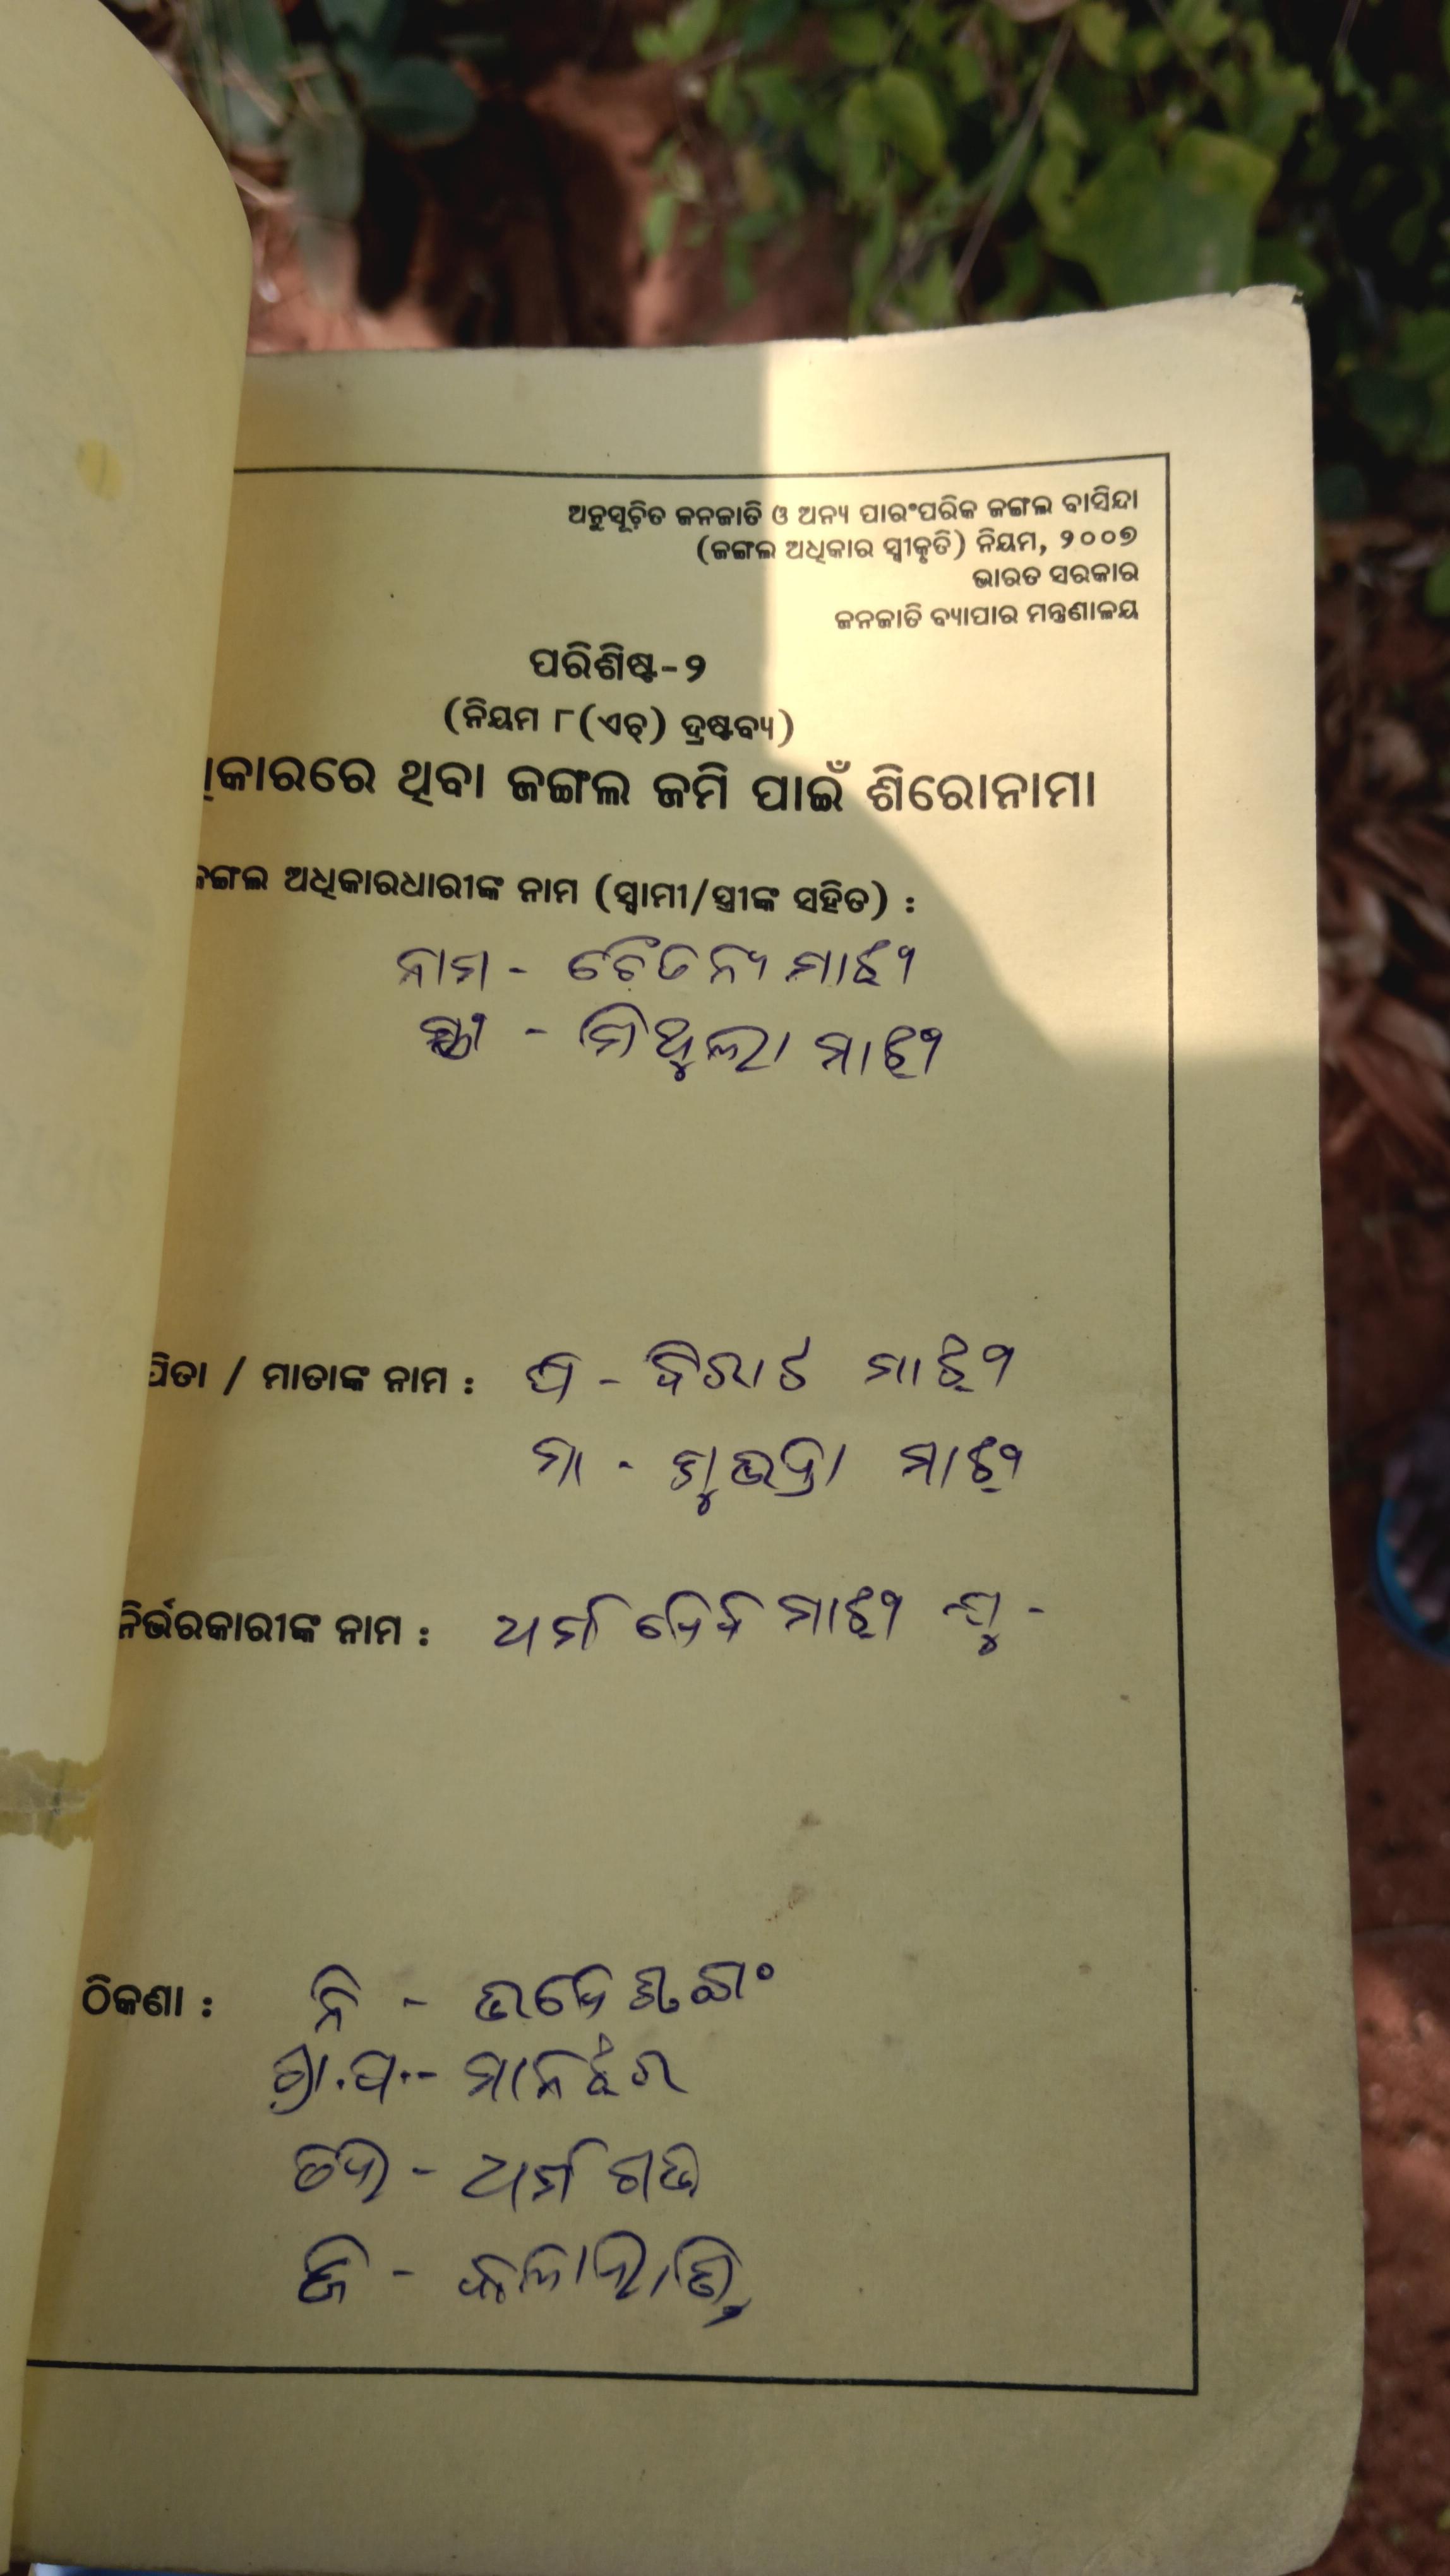 ଅନୁସୂଚିତ ଜନଜାତି ଓ ଅନ୍ୟ ପାରଂପରିକ ଜଙ୍ଗଲ ବାସିନ୍ଦା
(ଜଙ୍ଗଲ ଅଧିକାର ସ୍ୱୀକୃତି) ନିୟମ, ୨୦୦୭
ଭାରତ ସରକାର
ଜନଜାତି ବ୍ୟାପାର ମନ୍ତ୍ରଣାଳୟ
ପରିଶିଷ୍ଟ-୨
(ନିୟମ ୮(ଏଚ୍) ଦ୍ରଷ୍ଟବ୍ୟ)
ଧିକାରରେ ଥିବା ଜଙ୍ଗଲ ଜମି ପାଇଁ ଶିରୋନାମା
ଜଙ୍ଗଲ ଅଧିକାରଧାରୀଙ୍କ ନାମ (ସ୍ୱାମୀ/ସ୍ତ୍ରୀଙ୍କ ସହିତ) :
ନାମ - ଚୈତନ୍ୟ ମାଝୀ
ସ୍ତ୍ରୀ - ମିଥୁଲା ମାଝୀ
ପିତା / ମାତାଙ୍କ ନାମ : ପି - ବିରାଟ ମାଝୀ
ମା - ସୁଭଦ୍ରା ମାଝୀ
ନିର୍ଭରକାରୀଙ୍କ ନାମ : ଧର୍ମ ଦେବ ମାଝୀ ପୁ -
ଠିକଣା : ନି -
ଗ୍ରା.ପ.- ମାନଝର
ତହ - ଧର୍ମଗଡ
ଜି - କଳାହାଣ୍ଡି